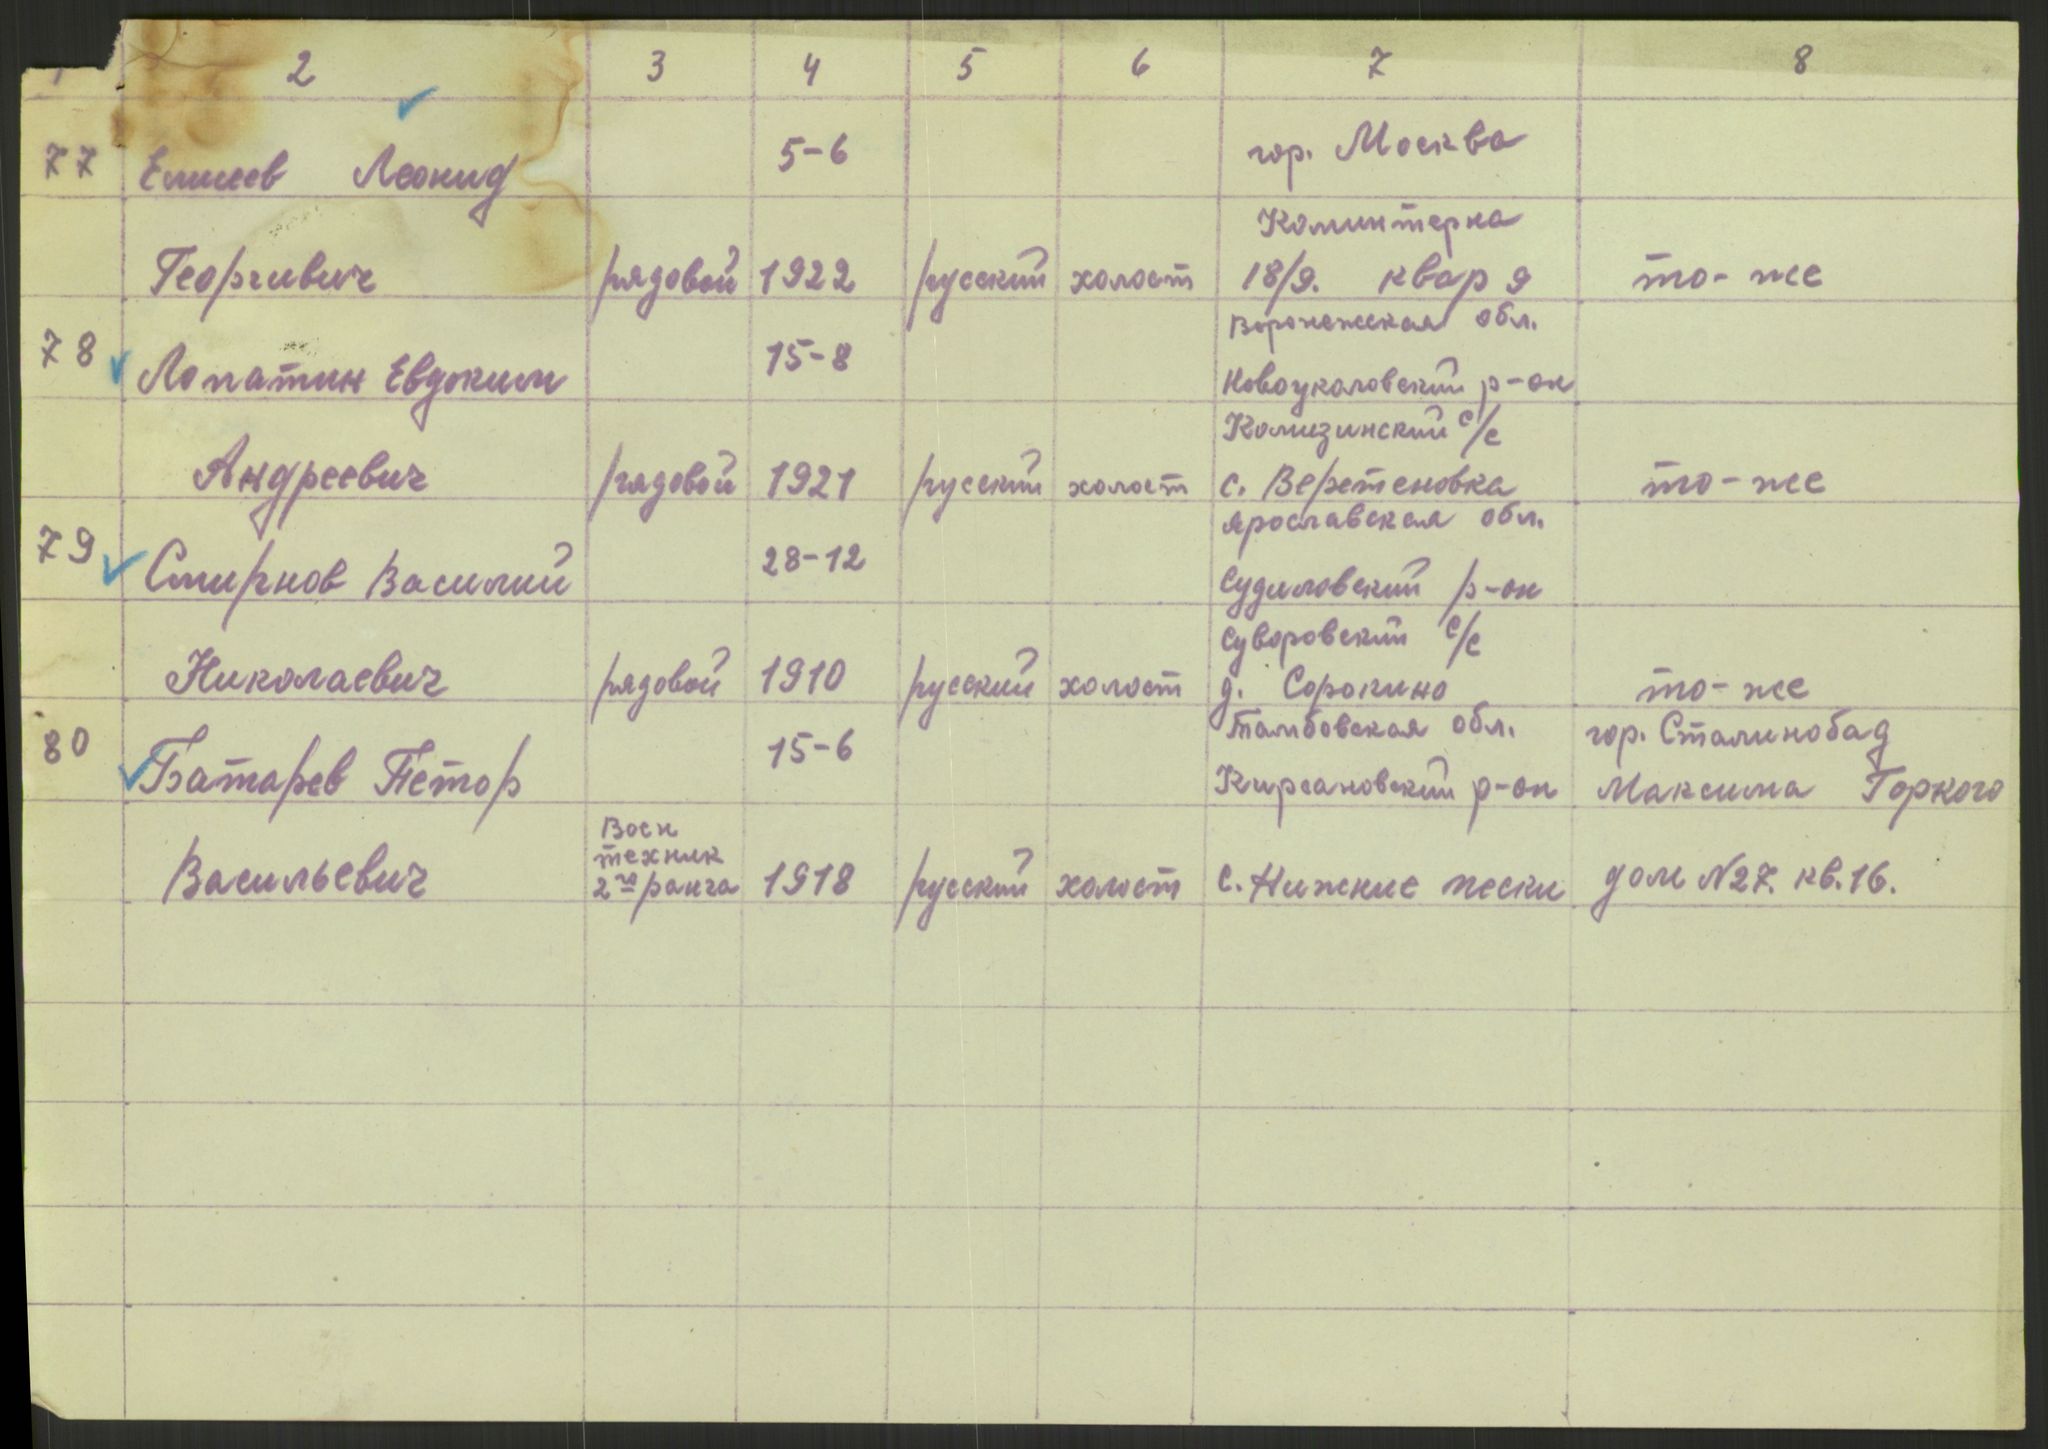 1 2 3 4 5 6 7 8
77 Елисеев Леонид 5-6 гор. Москва
Коминтерна
Георгивич рядовой 1922 русский холост 18/9. квар 9 то-же
Воронежская обл.
78 Лопатин Евдоким 15-8 Новоукаловский р-он
Комизинский с/с
Андреевич рядовой 1921 русский холост с. Веретеновка то-же
Ярославская обл.
79 Смирнов Василий 28-12 Судиловский р-он
Суворовский с/с
Николаевич рядовой 1910 русский холост д. Сорокино то-же
Тамбовская обл. гор. Сталинобад
80 Батарев Петор 15-6 Кирсановский р-он Максима Горкого
Воен
техник
Васильевич 2го ранга 1918 русский холост с. Нижние пески дом №27. кв.16.